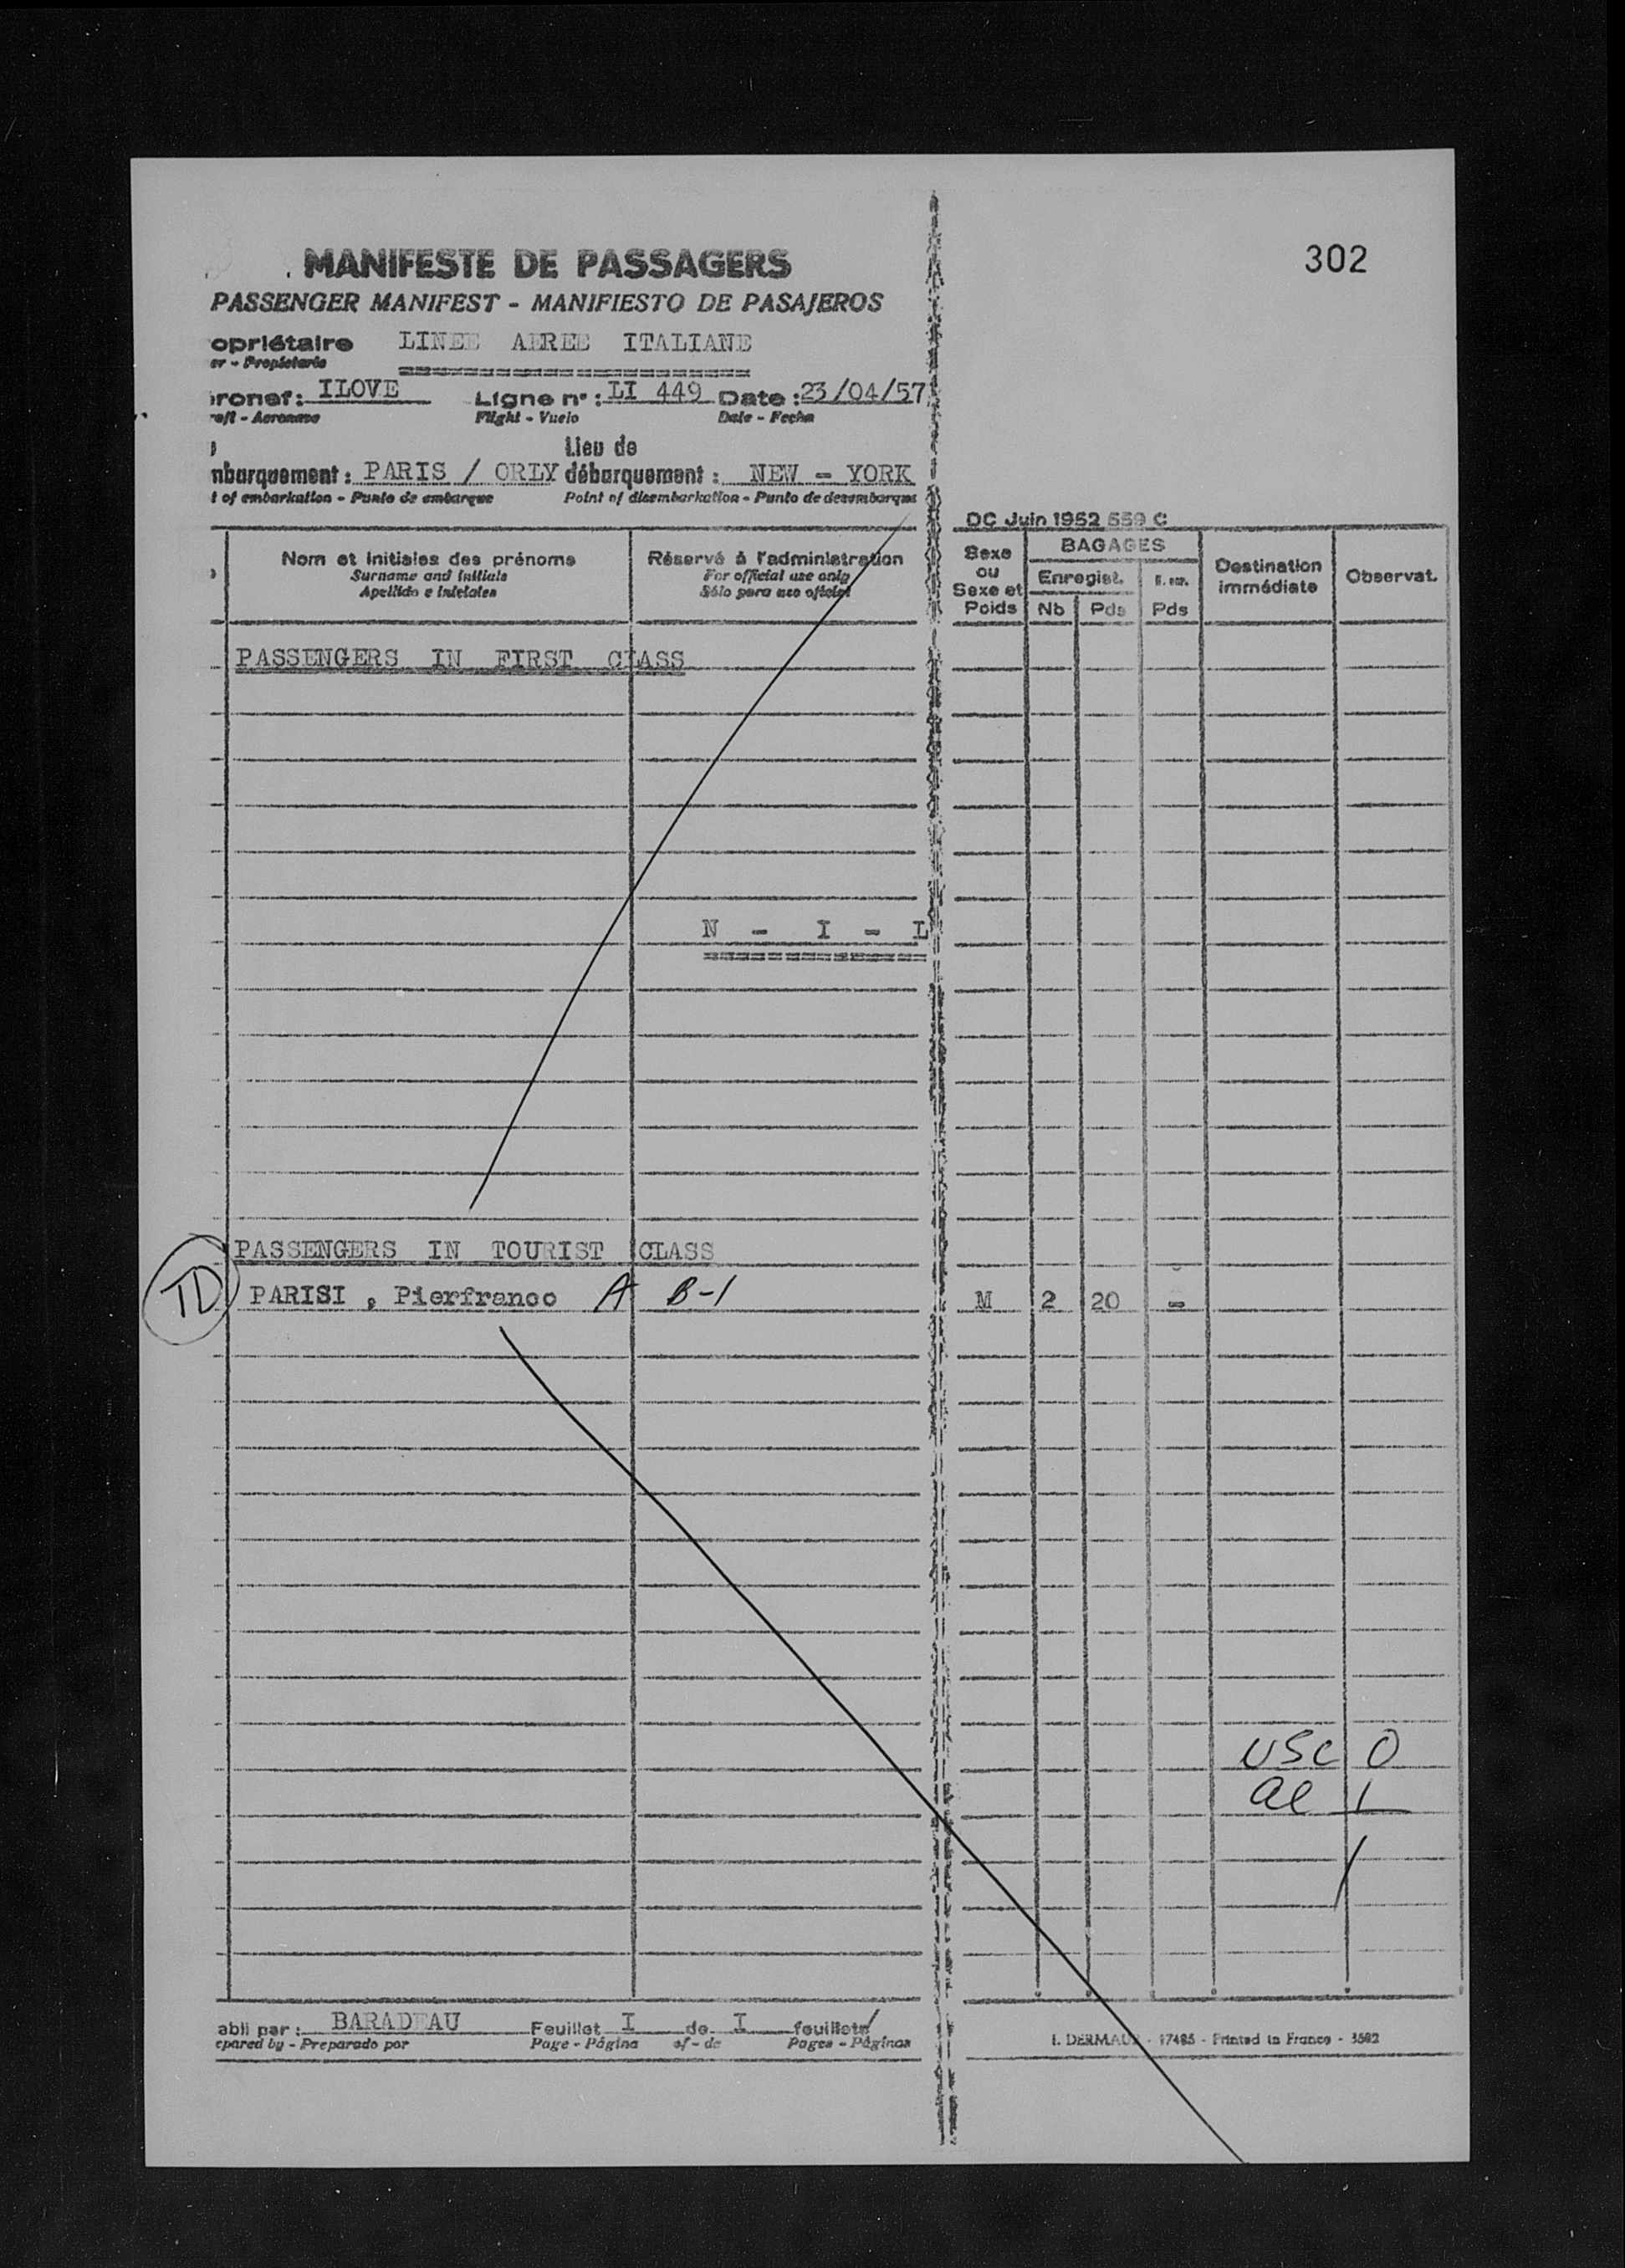 302
MANIFESTE DE PASSAGERS
PASSENGER MANIFEST - MANIFIESTO DE PASAJEROS
opriétaire LINEE AEREE ITALIANE
er - Propietario
ronef: ILOVE Ligne n°: LI 449 Date: 23/04/57
raft - Aeronave Flight - Vuelo Date - Fecha
Lieu de
mbarquement: PARIS / ORLY débarquement: NEW - YORK
t of embarkation - Punto de embarque Point of disembarkation - Punto de desembarque
DC Juin 1952 559 C
Nom et initiales des prénoms Réservé à l'administration Sexe ou Sexe et Poids BAGAGES Destination immédiate Observat.
Surname and initials For official use only Enregist.
Apellido e iniciales Sólo para uso oficial Nb Pds Pds
PASSENGERS IN FIRST CLASS
N - I - L
PASSENGERS IN TOURIST CLASS
TD PARISI , Pierfranco A B-1 M 2 20 -
USC 0
al 1
1
abli par: BARADEAU Feuillet I de I feuillets
epared by - Preparado por Page - Página of - de Pages - Páginas
I. DERMAUX - 17485 - Printed in France - 3582